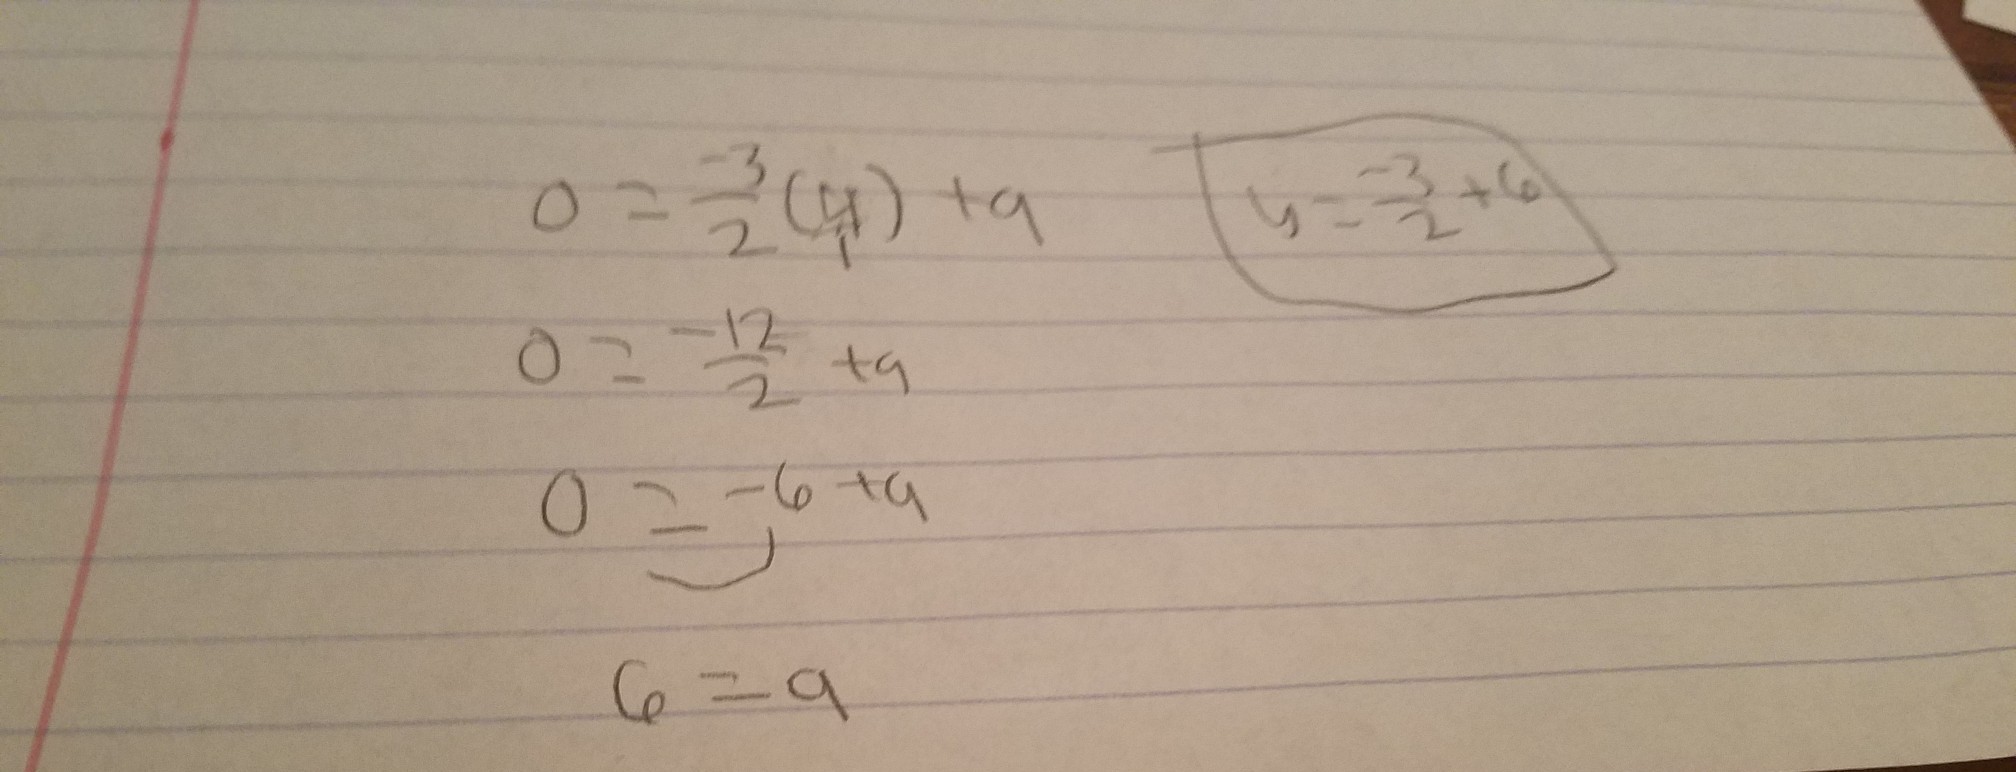 0 = -3/2 (4/1) + a
y = -3/2 + 6
0 = -12/2 + a
0 = -6 + a
6 = a